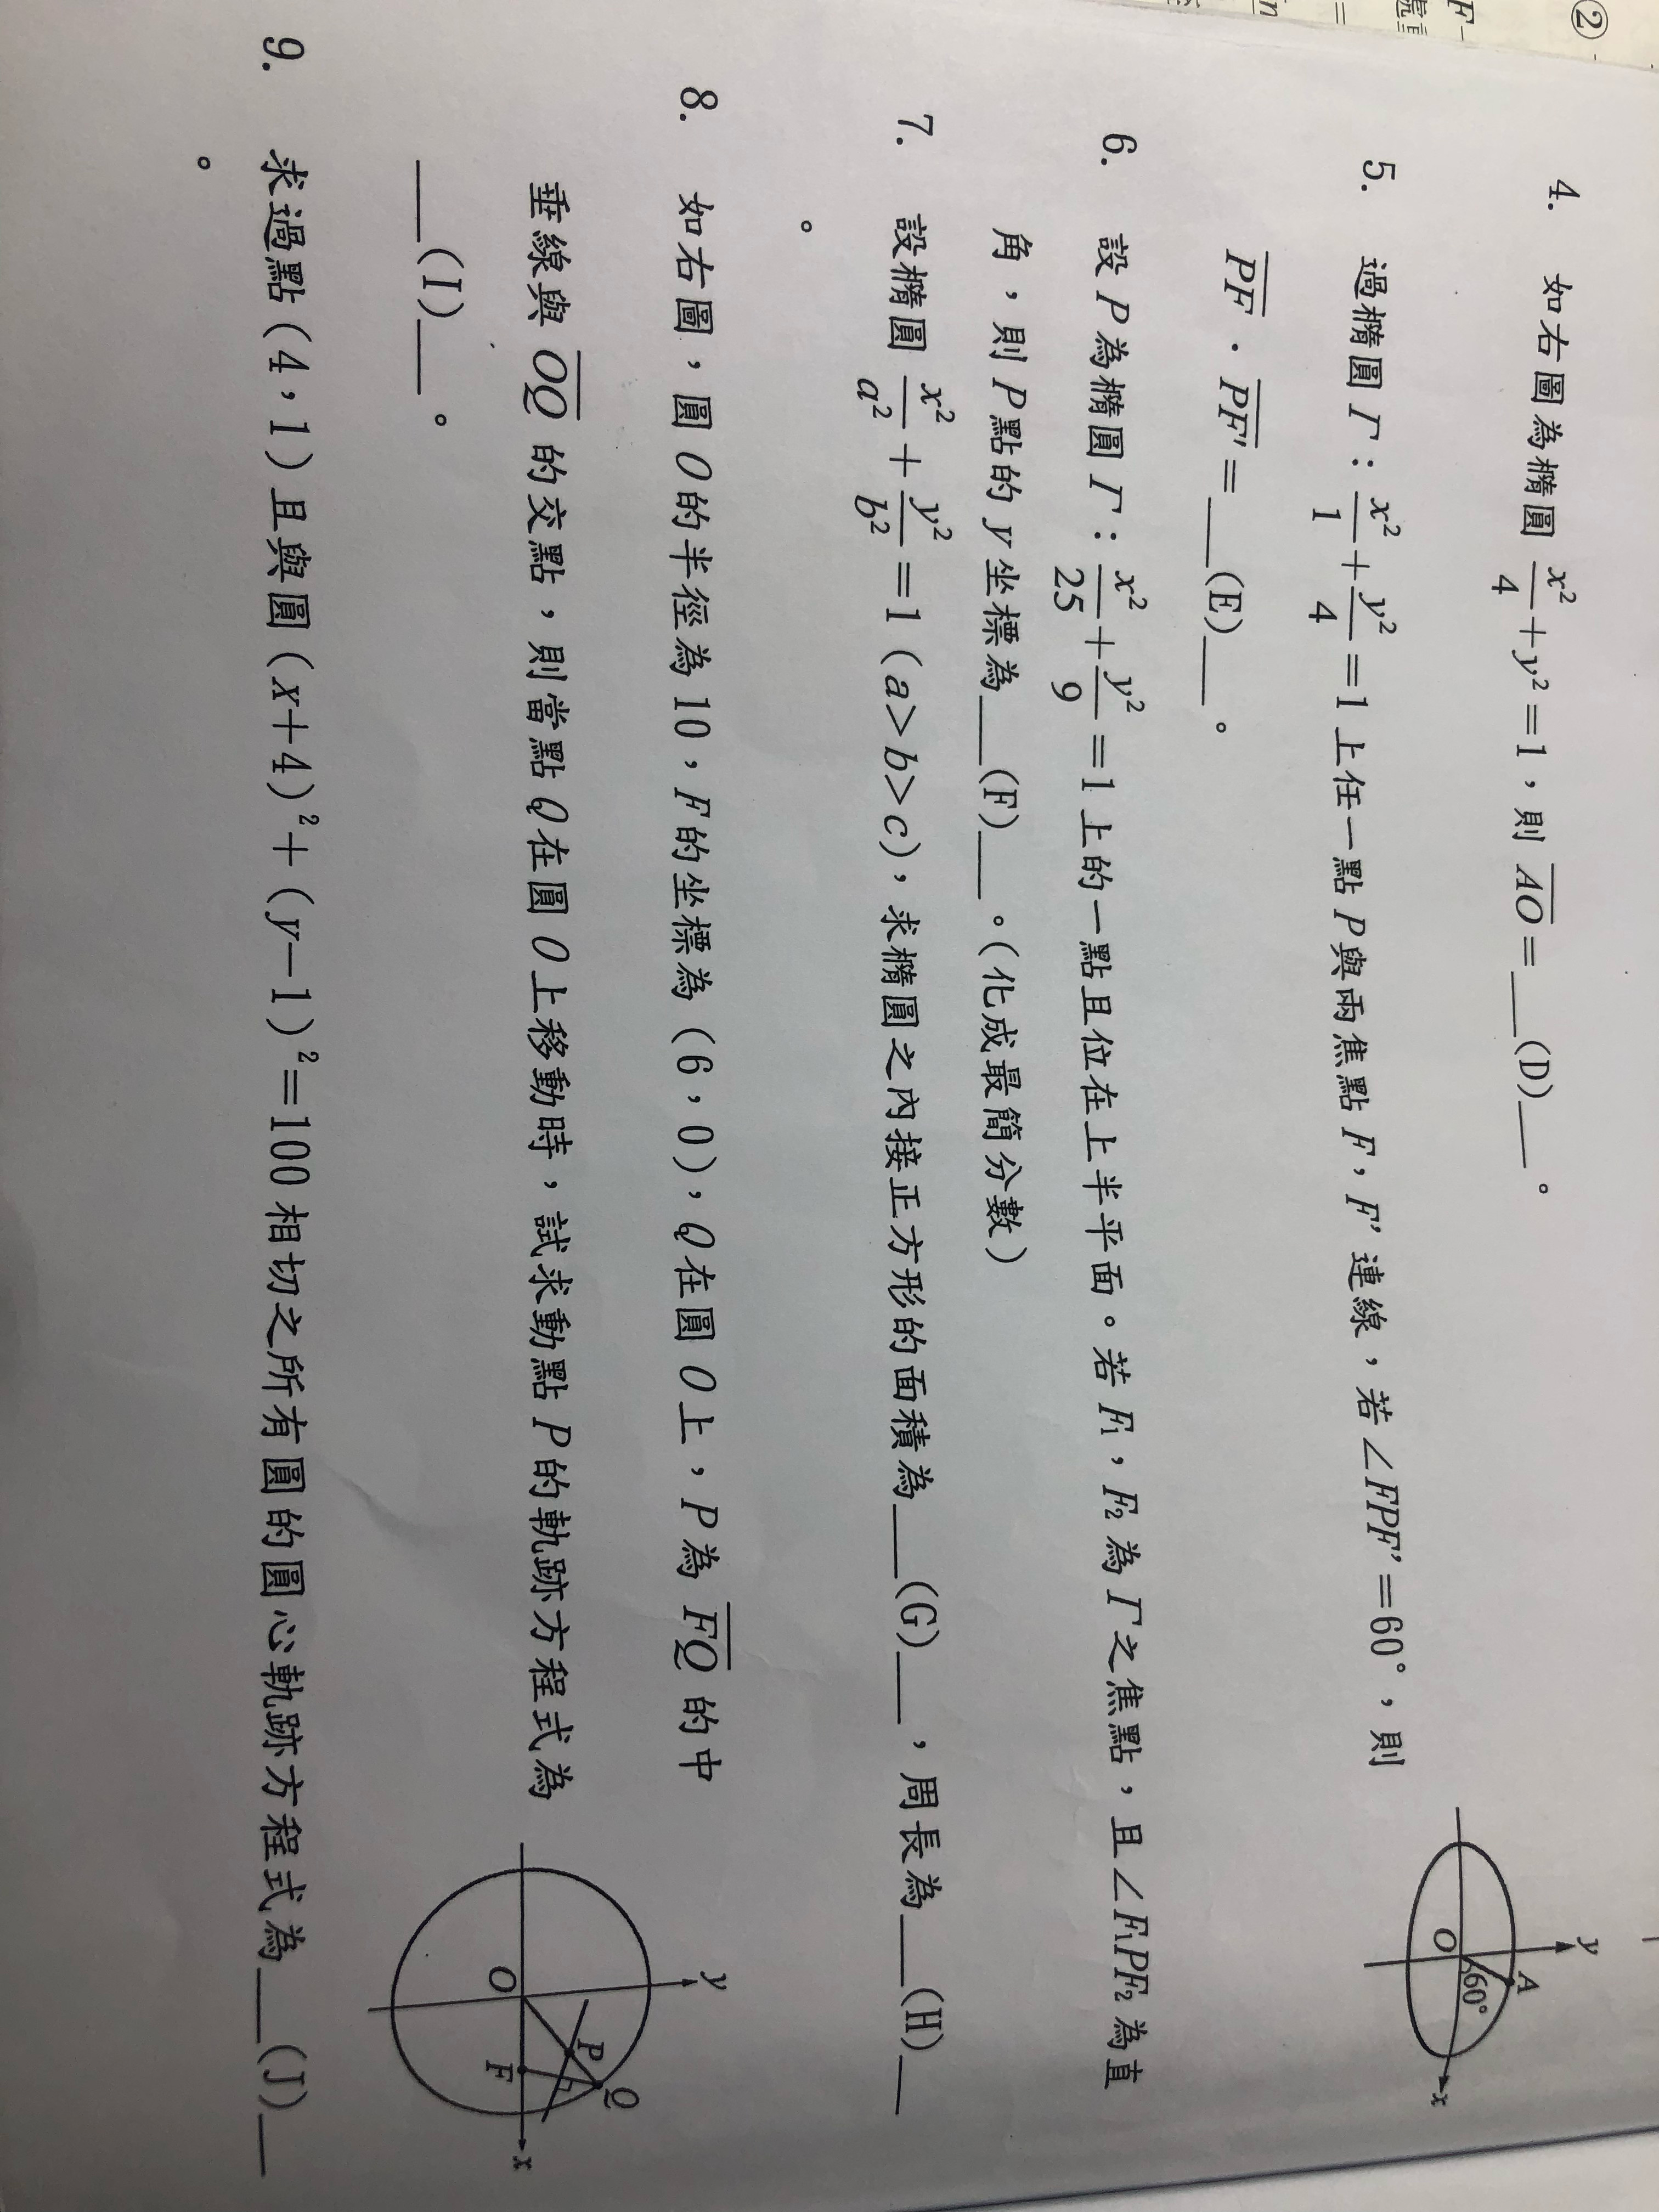 ②
F
4. 如右圖為橢圓 x²/4+y²=1,則 AO=__(D)__。
y
A
60°
O
x
5. 過橢圓 Γ:x²/1+y²/4=1 上任一點 P 與兩焦點 F,F' 連線,若∠FPF'=60°,則
PF·PF'=__(E)__。
6. 設 P 為橢圓 Γ:x²/25+y²/9=1 上的一點且位在上半平面。若 F₁,F₂ 為 Γ 之焦點,且∠F₁PF₂ 為直
角,則 P 點的 y 坐標為__(F)__。(化成最簡分數)
7. 設橢圓 x²/a²+y²/b²=1(a>b>c),求橢圓之內接正方形的面積為__(G)__,周長為__(H)__
。
8. 如右圖,圓 O 的半徑為 10,F 的坐標為(6,0),Q 在圓 O 上,P 為 FQ 的中
垂線與 OQ 的交點,則當點 Q 在圓 O 上移動時,試求動點 P 的軌跡方程式為
__(I)__。
y
Q
P
O
F
x
9. 求過點(4,1)且與圓(x+4)²+(y−1)²=100 相切之所有圓的圓心軌跡方程式為__(J)__
。